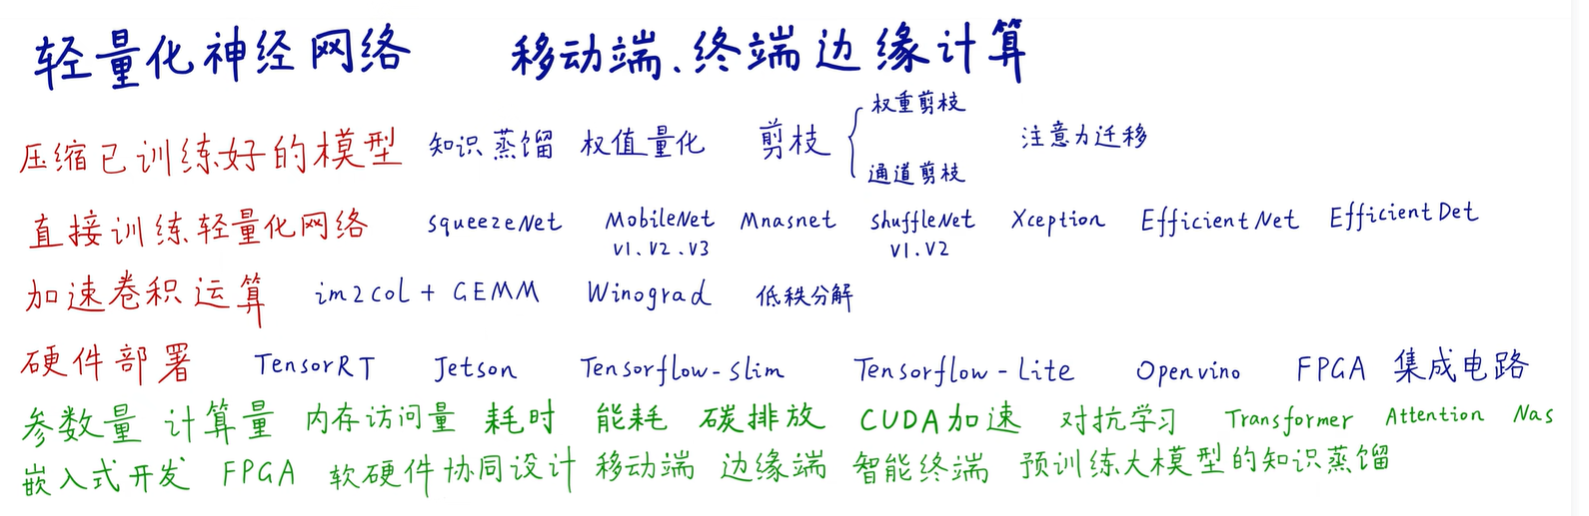 轻量化神经网络 移动端、终端边缘计算
权重剪枝
压缩已训练好的模型 知识蒸馏 权值量化 剪枝 注意力迁移
通道剪枝
直接训练轻量化网络 squeezeNet MobileNet Mnasnet shuffleNet Xception EfficientNet EfficientDet
V1、V2、V3 V1、V2
加速卷积运算 im2col + GEMM Winograd 低秩分解
硬件部署 TensorRT Jetson Tensorflow-slim Tensorflow-Lite Openvino FPGA 集成电路
参数量 计算量 内存访问量 耗时 能耗 碳排放 CUDA加速 对抗学习 Transformer Attention Nas
嵌入式开发 FPGA 软硬件协同设计 移动端 边缘端 智能终端 预训练大模型的知识蒸馏